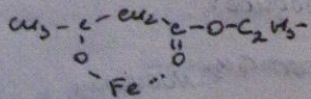 CH₃ - C - CH₂ - C - O - C₂H₅-
O O
Fe